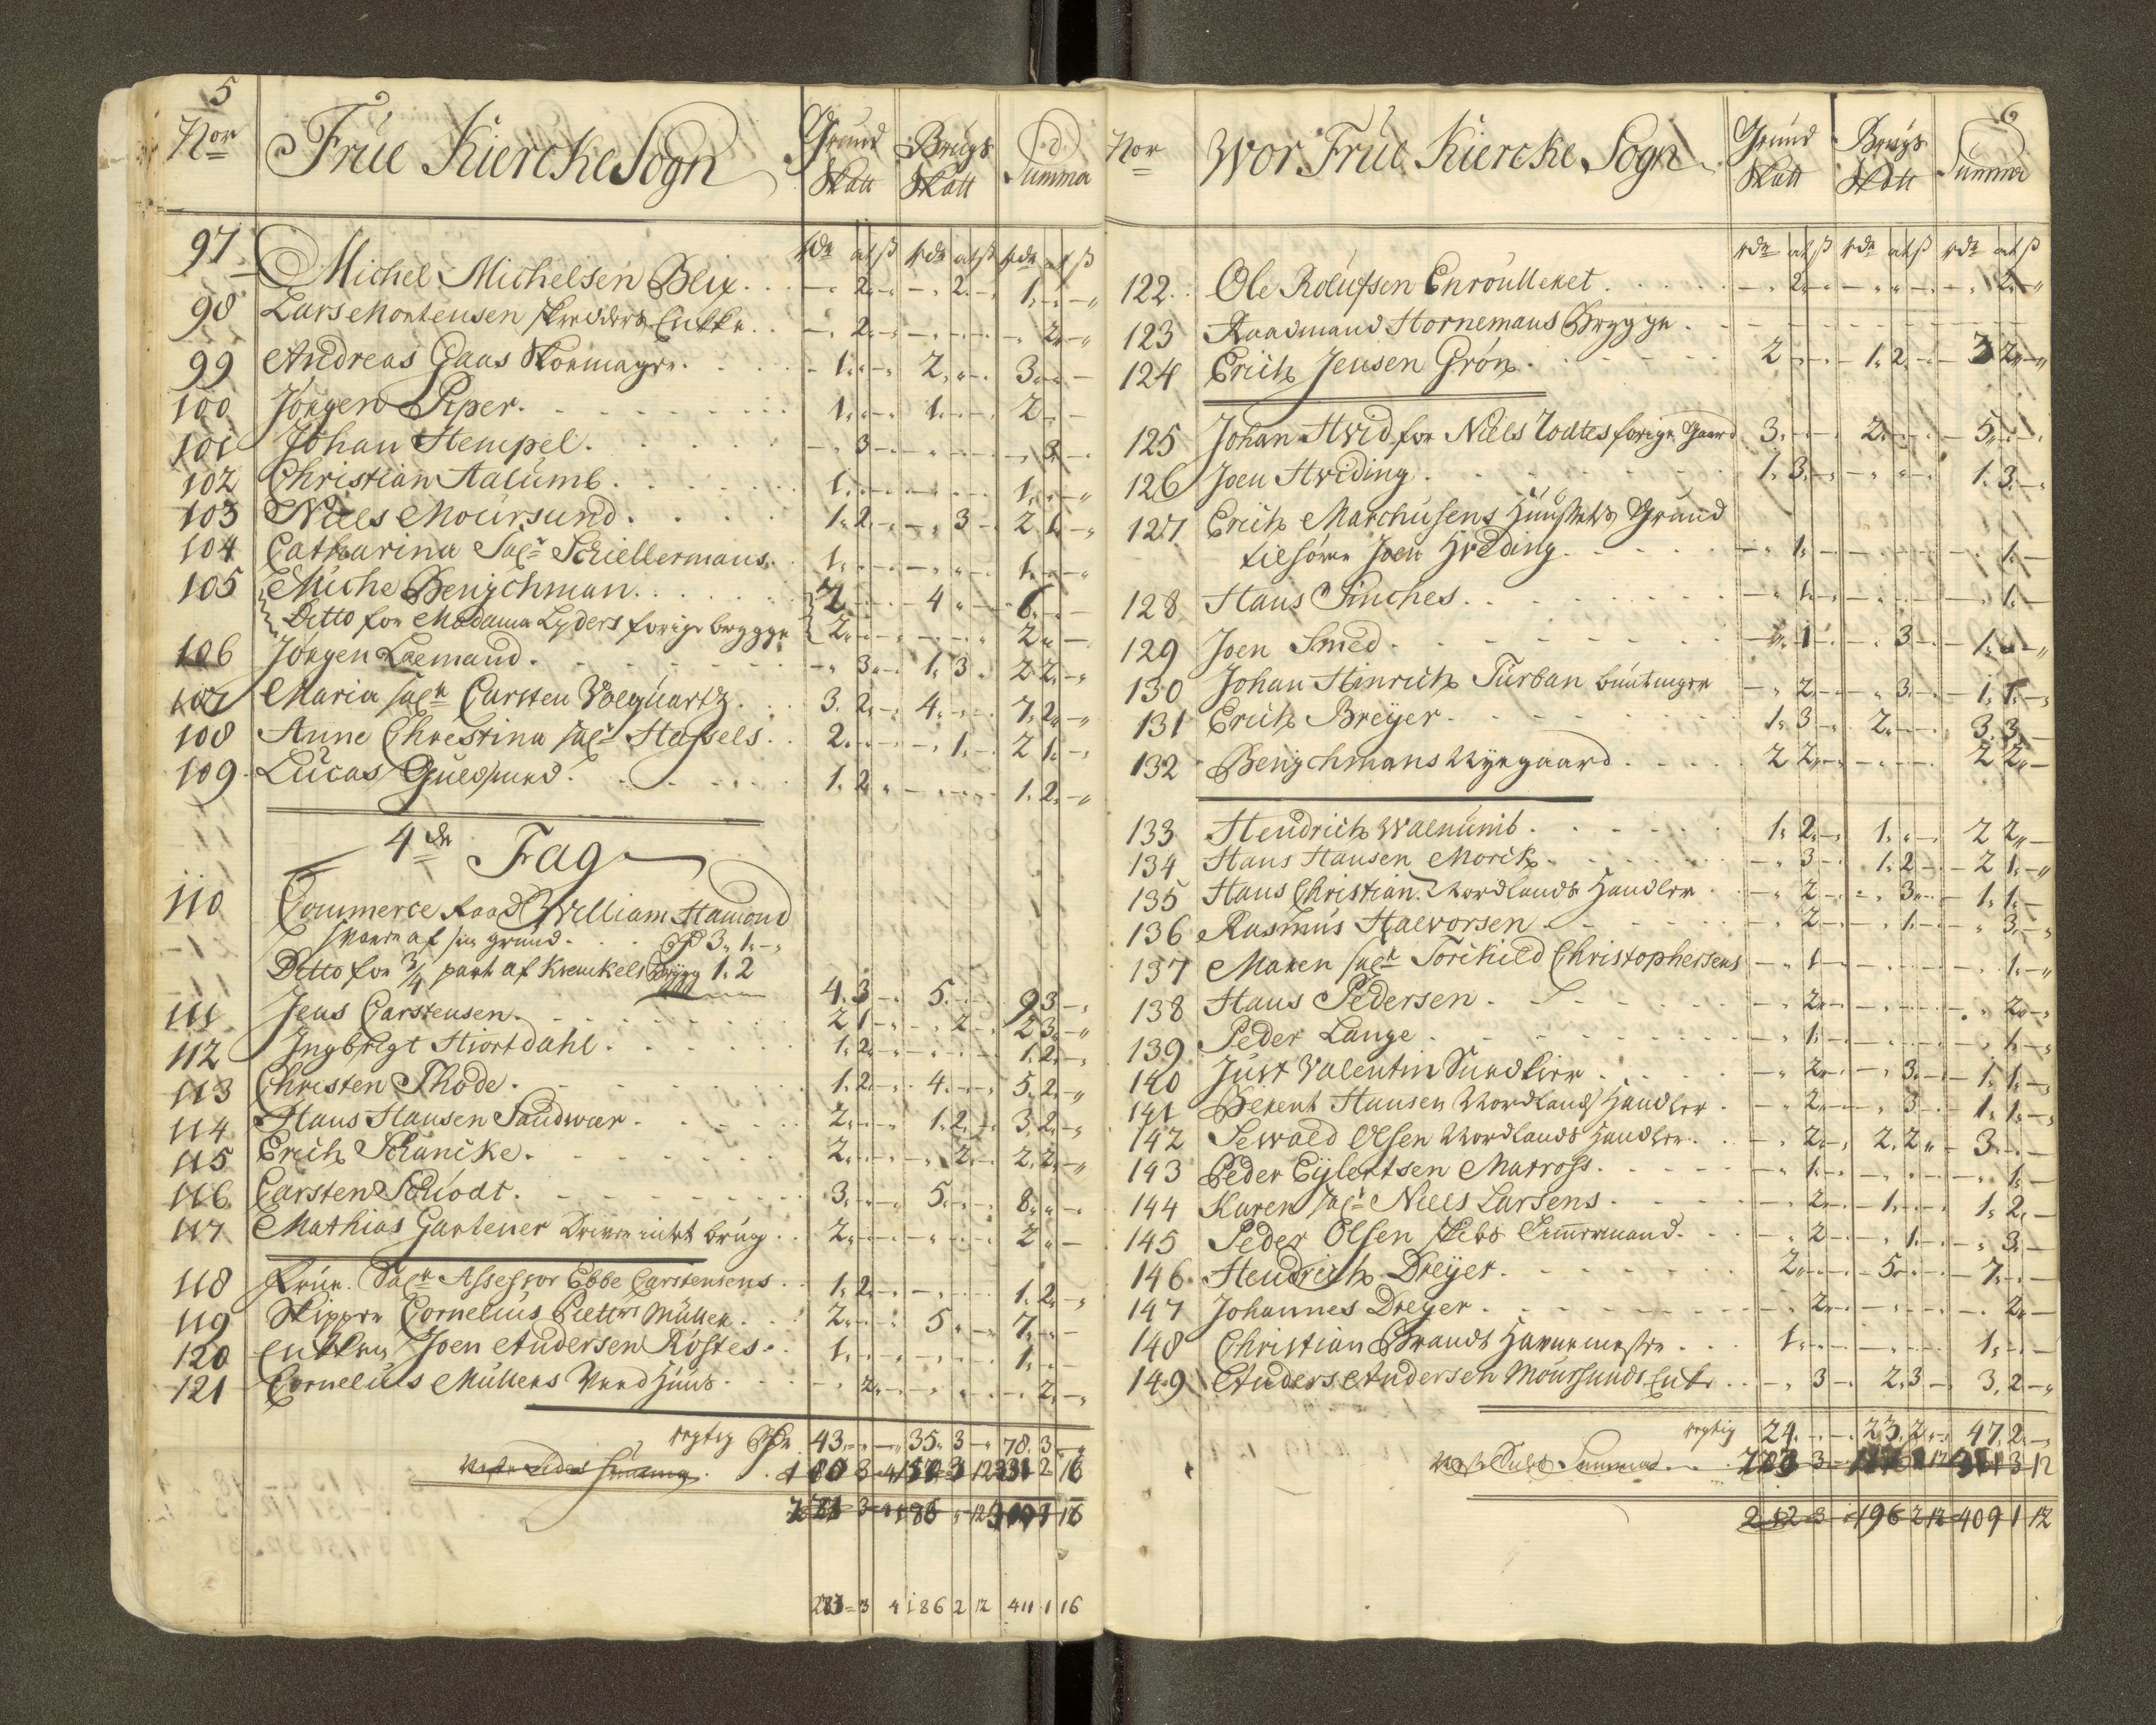 5
Nor Frue Kiercke Sogn Grund Skatt Brugs Skatt Summa
rdr ort ß rdr ort ß rdr ort ß
97 Michel Michelsen Blix . . . - „ 2 „ - - „ 2 „ - 1 „ - „
98 Lars Mortensen Skredders Enkke . . - „ 2 „ - - 2 „ - „
99 Andreas Gaas Skoemager . . . 1 „ - 2 „ - 3 „ -
100 Jörgen Piper . . . 1 „ - 1 „ - 2 „ -
101 Johan Stempel . . . - „ 3 - - „ 3 „ -
102 Christian Aalumb . . . 1 „ - 1 „ - „
103 Niels Moursund . . . 1 „ 2 „ - - „ 3 - 2 1 „ - „
104 Catharina Sal: Schiellermans . . 1 „ - 1 „ - „
105 Miche Hengchman . . . 2 - 4 „ - 6 „ -
Ditto for Madama Lyders forige brygge 2 „ - 2 „ -
106 Jörgen Leemand . . . - „ 3 „ - 1 „ 3 „ 2 2 „ - „
107 Maria Sal: Carsten Volquartz . . . 3 2 „ - 4 „ - 7 „ 2 „ - „
108 Anne Chrestina Sal: Hassels . . 2 „ - - „ 1 „ - 2 1 „ - „
109 Lucas Guldsmed . . . 1 „ 2 „ - 1 „ 2 „ - „
4de Fag
110 Commerce Raad William Hamond
Svarer af sin grund . . . 3 „ 1 „ -
Ditto for 3/4 part af Krenckels Brygg 1 „ 2
4 „ 3 - 5 „ - 9 3 - „
111 Jens Carstensen . . . 2 1 - - „ 2 - 2 3 - „
112 Ingbrigt Hiortdahl . . . 1 „ 2 „ - 1 „ 2 „ - „
113 Christen Thode . . . 1 „ 2 „ - 4 „ - 5 „ 2 „ - „
114 Hans Hansen Sandwær . . . 2 „ - 1 „ 2 „ - 3 „ 2 „ - „
115 Erich Schancke . . . 2 „ - - „ 2 „ - 2 „ 2 „ - „
116 Carsten Schiödt . . . 3 „ - 5 „ - 8 „ -
117 Mathias Gartener Driver intet brug . . 2 „ - 2 „ -
118 Frue Sal: Assessor Ebbe Carstensens . . 1 „ 2 „ - 1 „ 2 „ - „
119 Skipper Cornelius Pietters Müller . . 2 „ - 5 „ - 7 „ -
120 Enken Joen Andersen Röstes . . 1 „ - 1 „ -
121 Cornelius Müllers Vaad Huus . . . - „ 2 „ - - „ 2 „ - „
rigtig 43 „ - 35 „ 3 - 78 „ 3 - „
186 „ 12
283 = 3 4 186 2 12 411 1 16
6
Nor Wor Frue Kiercke Sogn Grund Skatt Brugs Skatt Summa
rdr ort ß rdr ort ß rdr ort ß
122 Ole Rolufsen Enroulleret . . . - „ 2 „ - - „ 2 „ - „
123 Raadmand Hornemans Brygge . -
124 Erich Jensen Grön . . . 2 - 1 „ 2 „ - 3 2 „ - „
125 Johan Hvid for Niels Todtes forige Gaard 3 „ - 2 „ - 5 „ -
126 Joen Hveding . . . 1 „ 3 „ - 1 „ 3 „ -
127 Erich Marchusens Huusteds Grund
tilhörer Joen Hveding . . . - „ 1 „ - - „ 1 „ -
128 Hans Finches . . . - „ 1 „ - - „ 1 „ -
129 Joen Smed . . . - „ 1 - - „ 3 - 1 „ - „
130 Johan Hinrich Turban buntmager - „ 2 „ - - „ 3 „ - 1 „ 1 „ - „
131 Erich Breyer . . . 1 „ 3 - 2 „ - 3 „ 3 „ -
132 Hengchmans Nyegaard . . . 2 2 „ - 2 2 „ -
133 Hendrich Walnumb . . . 1 „ 2 „ - 1 „ - 2 2 „ -
134 Hans Hansen Morich . . . - „ 3 - 1 „ 2 - 2 1 „ - „
135 Hans Christian Nordlands Handler . - „ 2 - - „ 3 „ - 1 „ 1 „ -
136 Rasmus Halvorsen . . . - „ 2 - - „ 1 „ - - „ 3 „ - „
137 Maren Sal: Torchild Christophersens - „ 1 - - „ 1 „ - „
138 Hans Pedersen . . . - „ 2 „ - - „ 2 „ - „
139 Peder Lange . . . - „ 1 „ - - „ 1 „ - „
140 Just Valentin Sundlier . . . - „ 2 „ - - „ 3 „ - 1 „ 1 „ - „
141 Berent Hansen Nordlands Handler . - „ 2 „ - - „ 3 „ - 1 „ 1 „ - „
142 Sewald Olsen Nordlands Handler . . - „ 2 „ - 2 „ 2 „ - 3 „ -
143 Peder Eylertsen Matross . . . - „ 1 „ - - „ 1 „ -
144 Karen Sal: Niels Larsens . . . - „ 2 „ - 1 „ - 1 „ 2 „ -
145 Peder Olsen Skibs Timmermand . . - „ 2 - - „ 1 „ - - „ 3 „ -
146 Hendrich Dreyer . . . 2 „ - 5 „ - 7 „ -
147 Johannes Dreyer . . . - „ 2 „ - - „ 2 „ -
148 Christian Brandt Havnemester . . . 1 „ - 1 „ -
149 Anders Andersen Moursunds Enke . . - „ 3 - 2 „ 3 - 3 „ 2 - „
rigtig 24 „ - 23 „ 2 „ - 47 „ 2 „ -
212 3 - 196 2 12 409 1 12